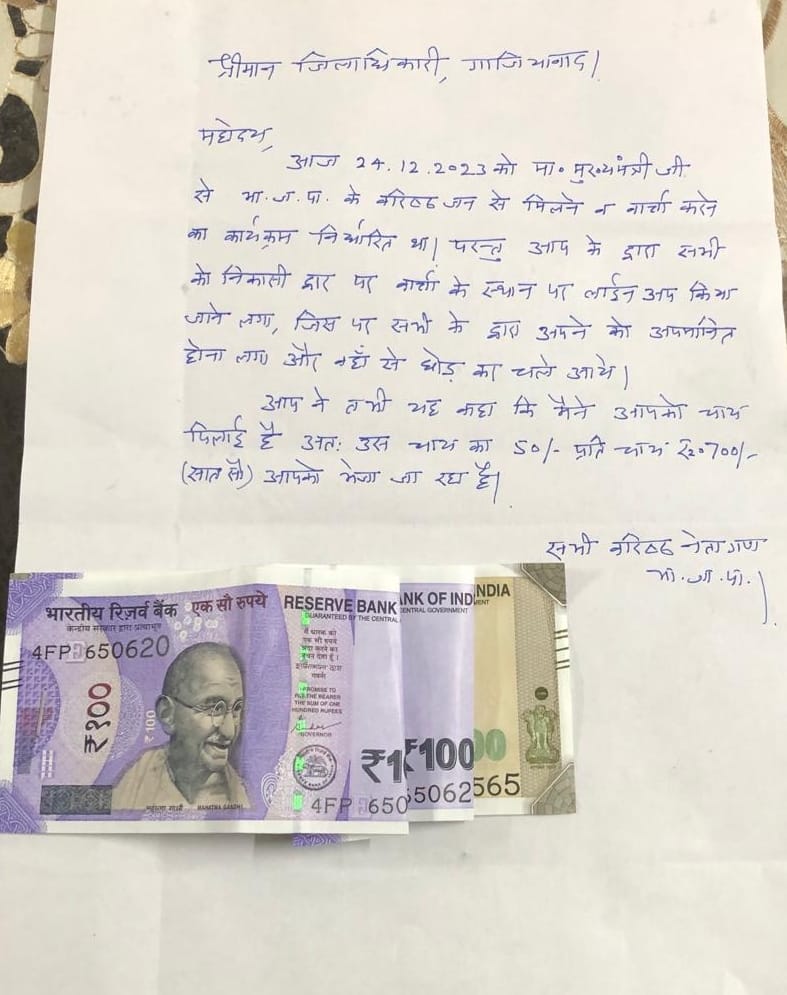 श्रीमान जिलाधिकारी, गाजियाबाद।
महोदय,
आज 24.12.2023 को मा० मुख्यमंत्री जी
से भा.ज.पा. के वरिष्ठ जन से मिलने व वार्ता करने
का कार्यक्रम निर्धारित था। परन्तु आप के द्वारा सभी
को निकासी द्वार पर वार्ता के स्थान पर लाईन अप किया
जाने लगा, जिस पर सभी के द्वारा अपने को अपमानित
होना लगा और वहाँ से छोड़ कर चले आये।
आप ने तभी यह कहा कि मैंने आपको चाय
पिलाई है अतः उस चाय का 50/- प्रति चाय रू०700/-
(सात सौ) आपको भेजा जा रहा है।
सभी वरिष्ठ नेतागण
भा.जा.पा.।
भारतीय रिज़र्व बैंक एक सौ रुपये RESERVE BANK NK OF IND INDIA
केन्द्रीय सरकार द्वारा प्रत्याभूत GUARANTEED BY THE CENTRAL ENTRAL GOVERNMENT MENT
4FP 650620
₹१००
₹100
I PROMISE TO
PAY THE BEARER
THE SUM OF ONE
HUNDRED RUPEES
GOVERNOR
₹1 ₹100 00
महात्मा गांधी MAHATMA GANDHI
4FP 650 65062 565